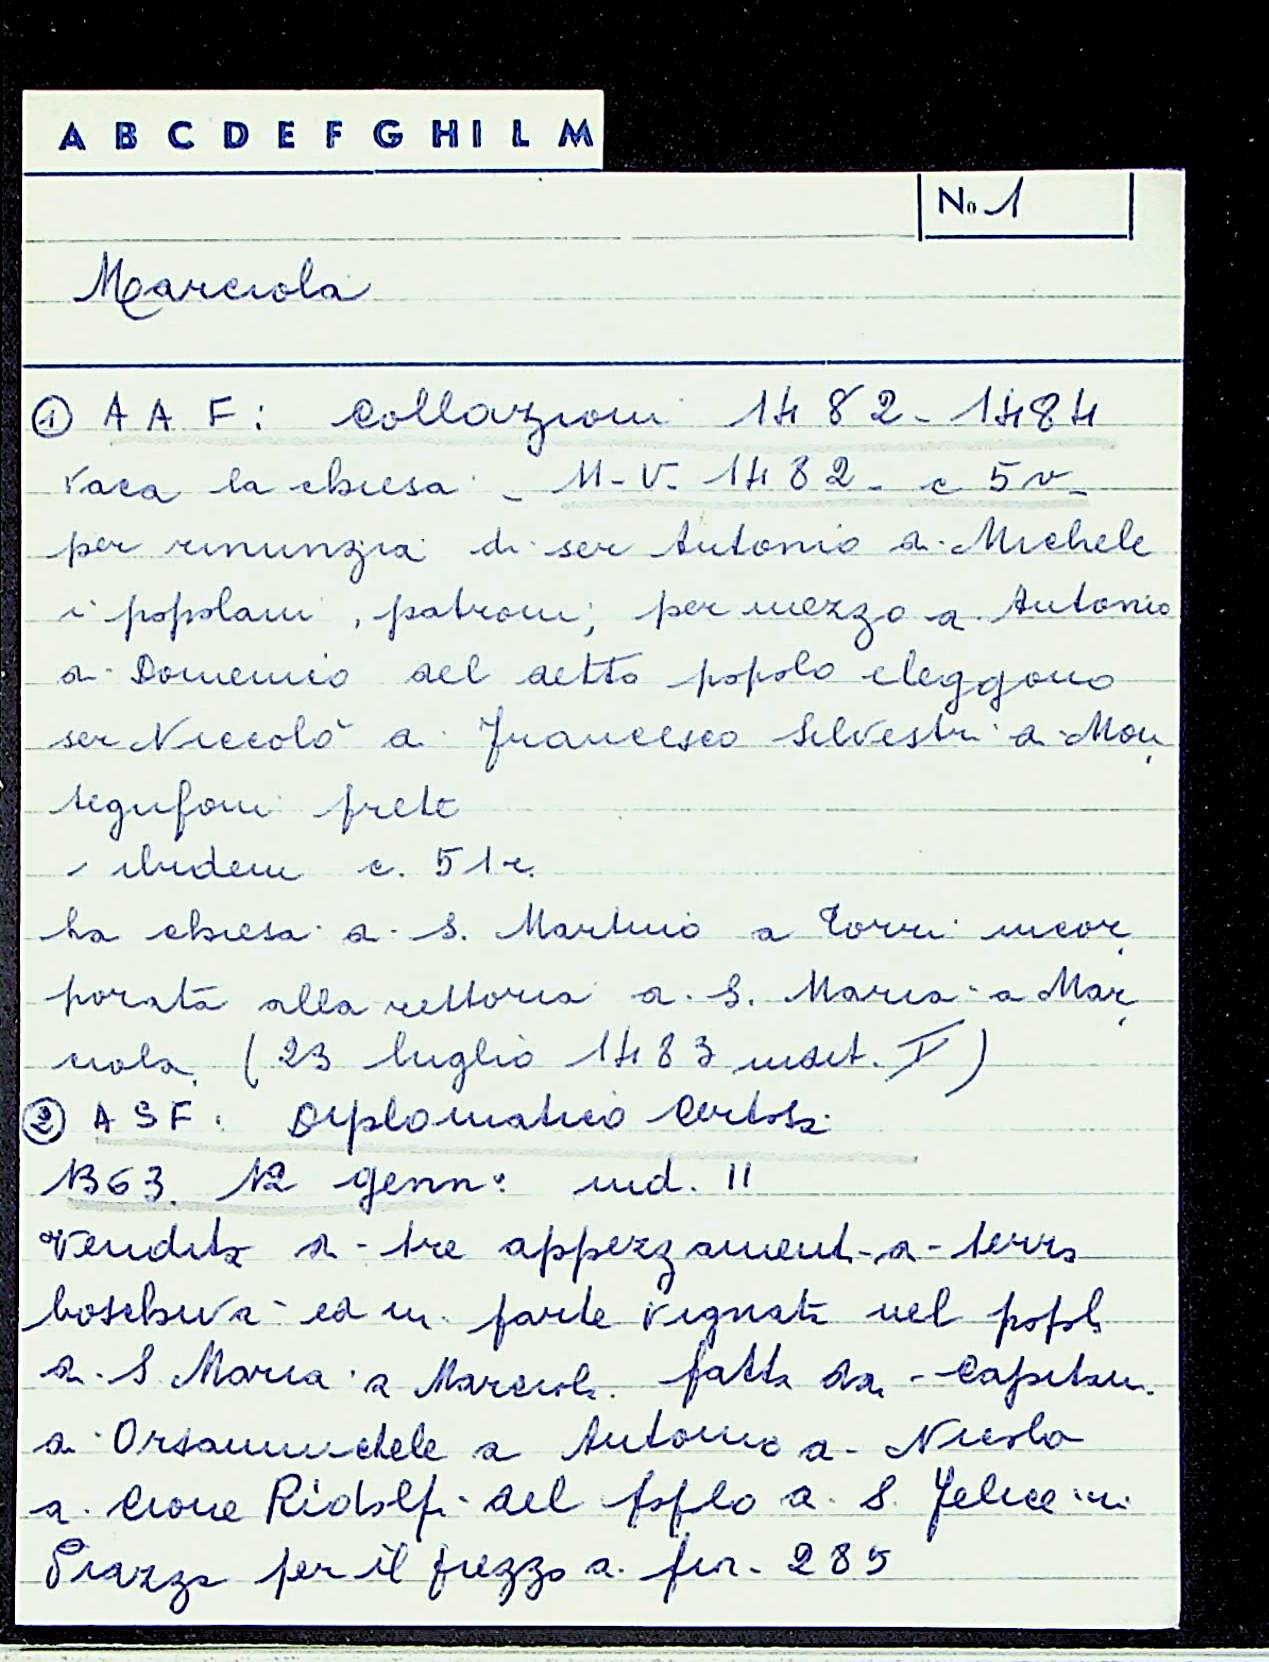 A B C D E F G H I L M
No 1
Marciola
① A A F: Collazioni 1482-1484
vaca la chiesa - 11-V-1482- c 5v-
per rinunzia di ser Antonio di Michele
i popolani, patroni, per mezzo di Antonio
di Domenico del detto popolo eleggono
ser Niccolò di Francesco Silvestri di Mon
tegufoni prete
ibidem c. 51r.
La chiesa di S. Martino a Torri incor
porata alla rettoria di S. Maria a Mar
ciola. (23 luglio 1483 indet. V)
② A S F: Diplomatico Certosa
1363. 12 genn: ind. II
Vendita di tre appezzamenti di terra
boschiva ed in parte vignata nel popolo
di S Maria a Marciola fatta dai Capitani
di Orsanmichele a Antonio di Nicola
di Cione Ridolfi del popolo di S. Felice in
Piazza per il prezzo di fior. 285